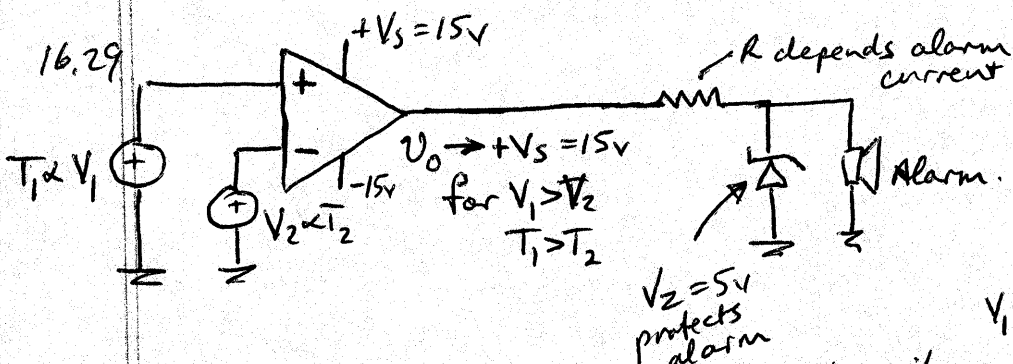 16.29
+Vs = 15v
R depends alarm
current
+
T₁ ∝ V₁
+
-
-15v
+
V₂ ∝ T₂
v₀ → +Vs = 15v
for V₁ > V₂
T₁ > T₂
Alarm.
Vz = 5v
protects
alarm
V₁